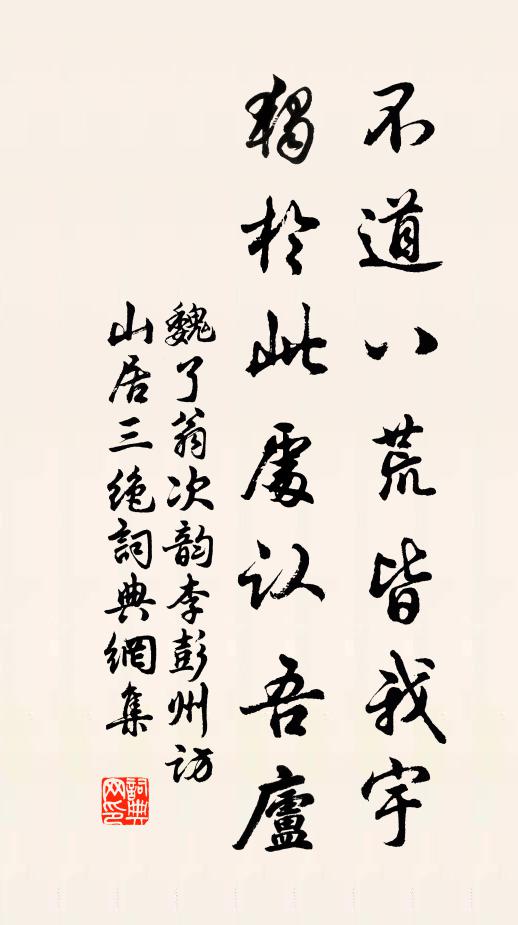 不道八荒皆我宇
獨於此處认吾廬
魏了翁次韵李彭州访
山居三绝詞典網集
詞典网印